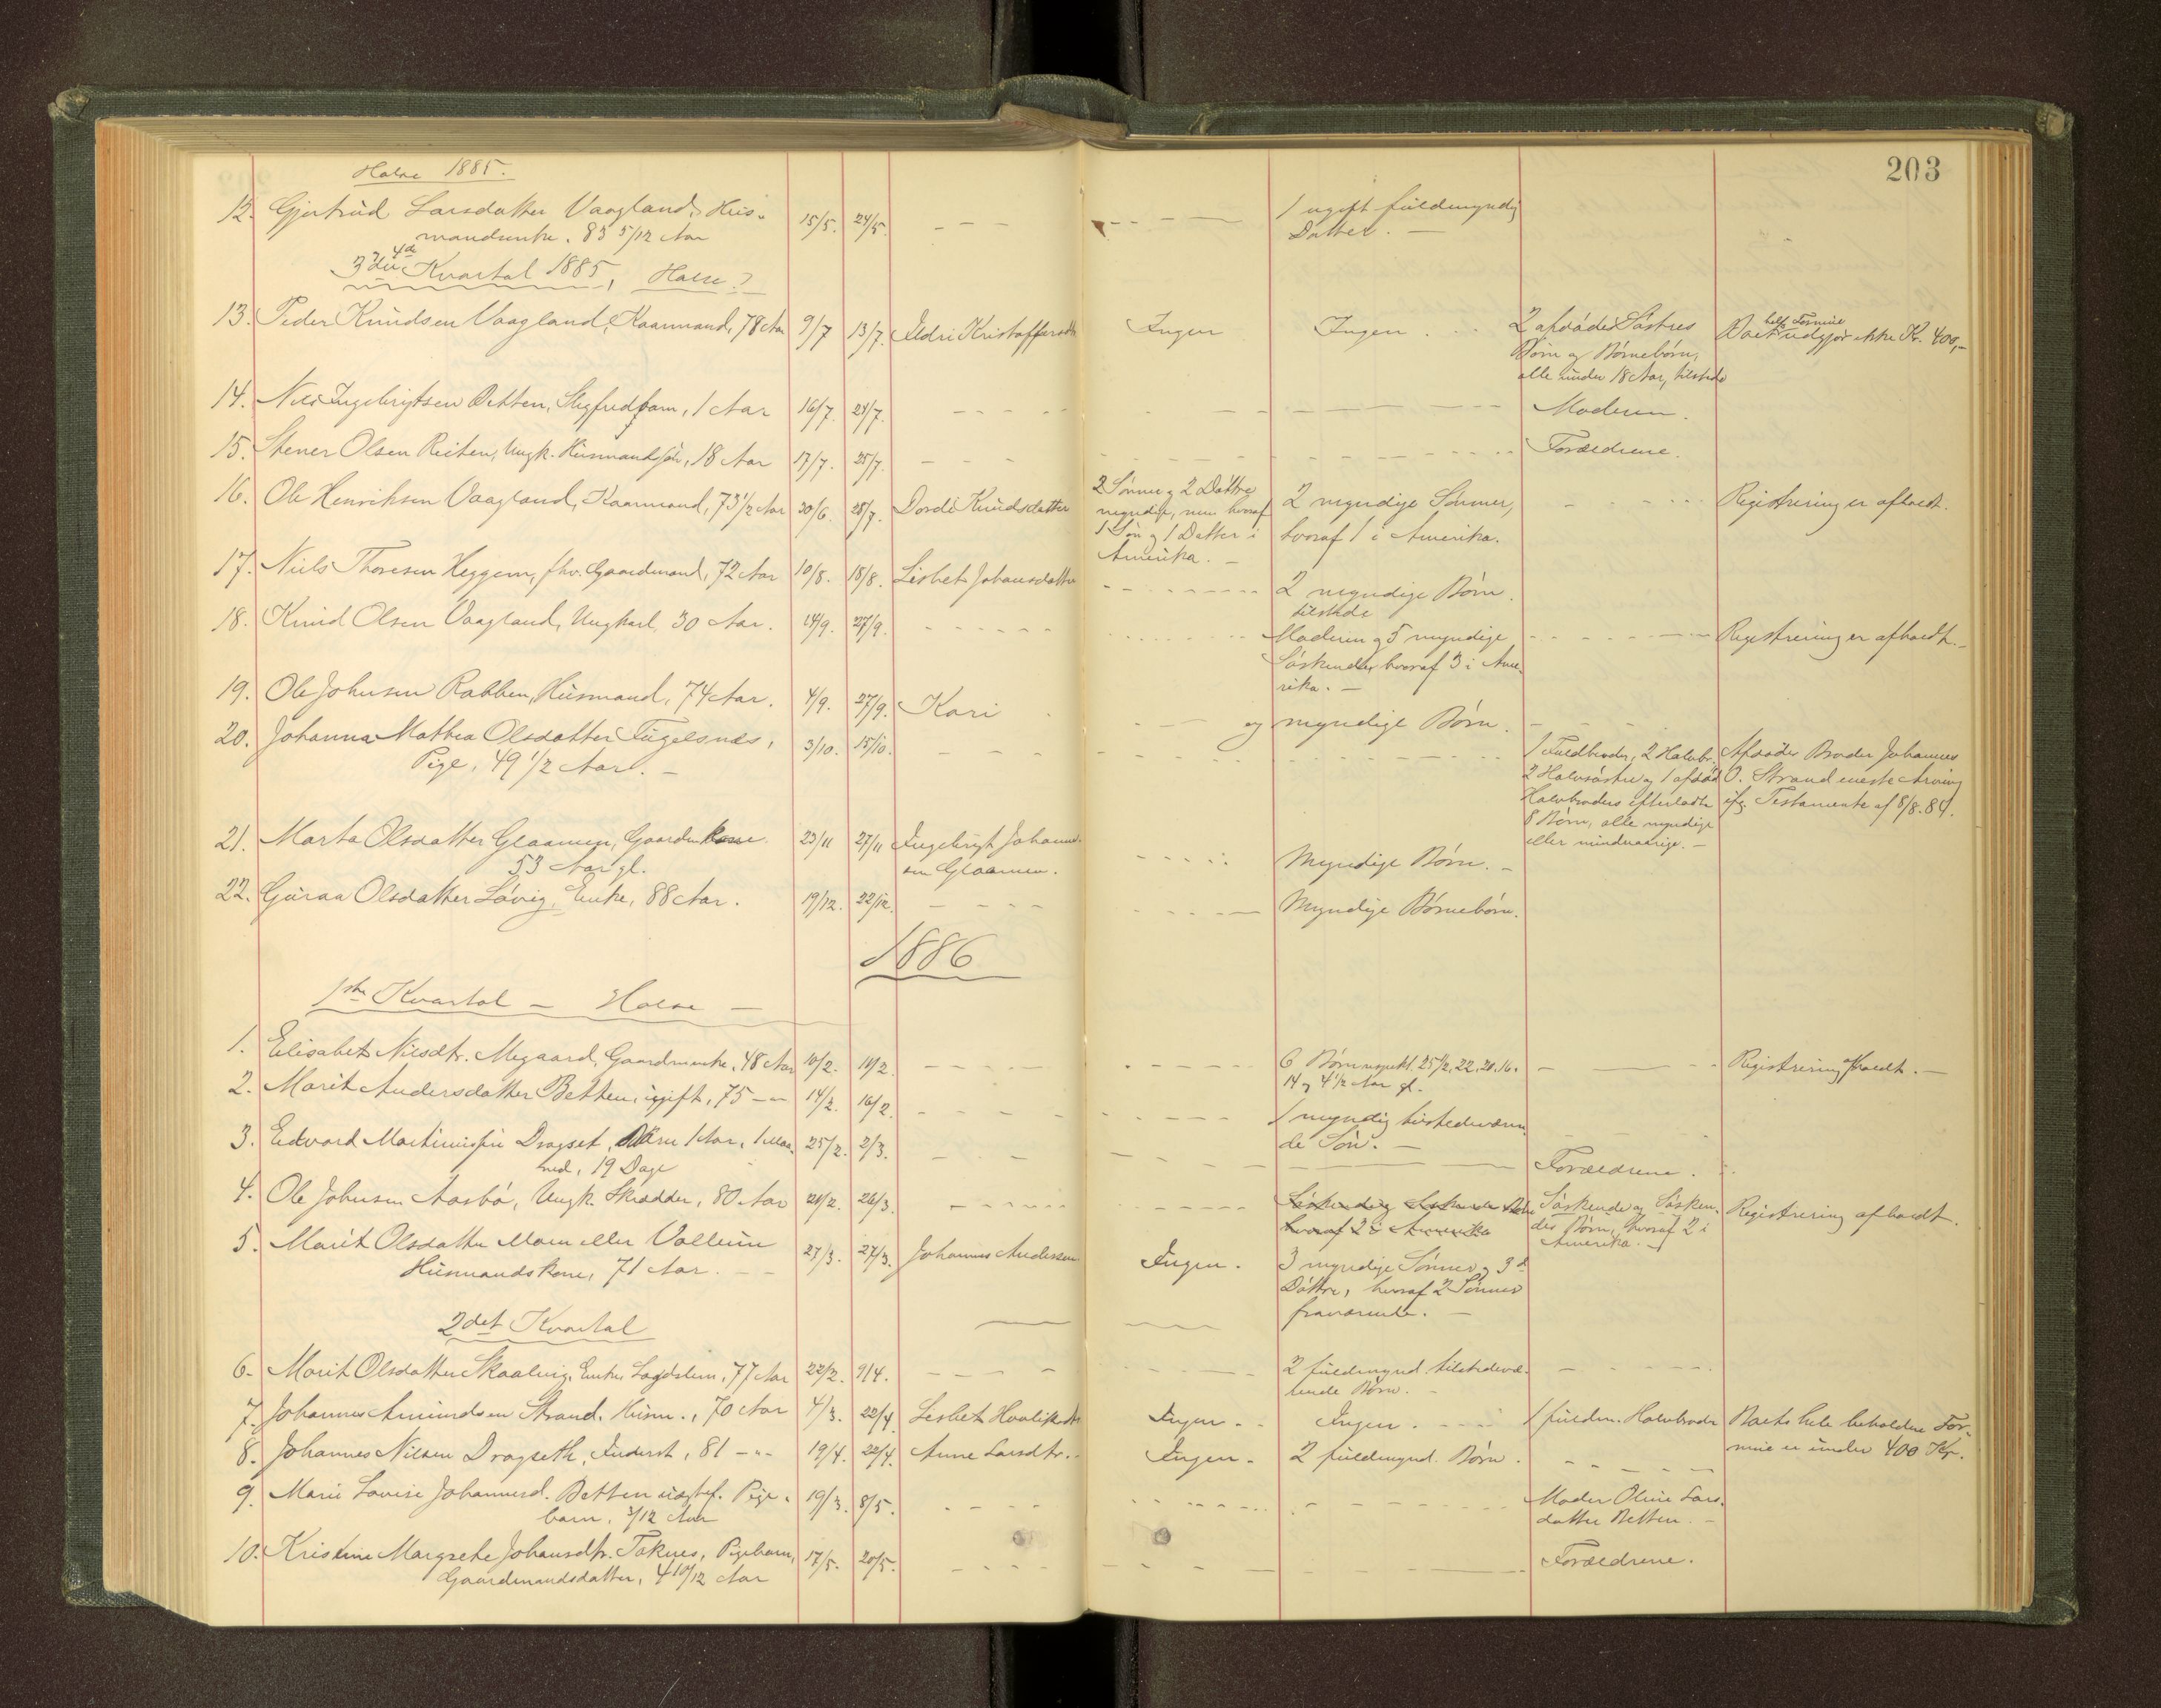 Halse 1885.
203
12. Gjertrud Larsdatter Vaagland, Hus- 15/5. 24/5. - - - - - - - 1 ugift fuldmyndig
mandsenke. 83 5/12 Aar Datter. -
3die 4de Kvartal 1885, Halse.
13. Peder Knudsen Vaagland, Kaarmand, 78 Aar 9/7 13/7. Eldri Kristoffersdtr Ingen Ingen. 2 afdøde Søstres Boets hele Formue udgjør ikke Kr. 400,-
Børn og Børnebørn,
alle under 18 Aar, tilstede
14. Nils Ingebrigtsen Betten, Slegfredbarn, 1 Aar 16/7. 24/7. - - - - - - - Moderen.
15. Stener Olsen Reiten, Ungk. Husmandssøn, 18 Aar 17/7. 25/7. - - - - - - - Forældrene.
16. Ole Henriksen Vaagland, Kaarmand, 73 1/2 Aar 30/6. 28/7. Dordi Knudsdatter 2 Sønner og 2 Døttre 2 myndige Sønner, - - - - Registrering er afholdt.
myndige, men hvoraf hvoraf 1 i Amerika.
1 Søn og 1 Datter i
Amerika. -
17. Niels Thoresen Heggem, fhv. Gaardmand, 72 Aar 10/8. 18/8. Lisbet Johansdatter - - - - 2 myndige Børn.
tilstede
18. Knud Olsen Vaagland, Ungkarl, 30 Aar. 14/9. 27/9. - - - - - - - Moderen og 5 myndige - - - - Registrering er afholdt. -
Søskende, hvoraf 3 i Ame-
rika. -
19. Ole Johnsen Rabben, Husmand, 74 Aar. 4/9. 27/9. Kari - - og myndige Børn. - - -
20. Johanna Mathea Olsdatter Fugelsnes, 3/10. 15/10. - - - - - - - 1 Fuldbroder, 2 Halvbr. Afdøde Broder Johannes
Pige, 49 1/2 Aar. - 2 Halvsøstre og 1 afdød O. Strand eneste Arving
Halvbroders efterladte ifg. Testamente af 8/8.84.
8 Børn, alle myndige
eller mindreaarige. -
21. Marta Olsdatter Glaamen, Gaardm.kone 23/11 27/11 Ingebrigt Johann- - - - - Myndige Børn. -
53 Aar gl. sen Glaamen.
22. Guraa Olsdatter Løvig, Enke, 88 Aar. 19/12. 22/12. - - - - - - - Myndige Børnebørn.
1886
1ste Kvartal - Halse -
1. Elisabet Nilsdtr. Megaard, Gaardmenke, 48 Aar 10/2. 11/2. - - - - - - - 6 Børn 25 1/2, 22, 20, 16, - - - Registrering afholdt. -
14 og 4 1/2 Aar gl.
2. Marit Andersdatter Betten, ugift, 75 -"- 14/2. 16/2. - - - - - - - 1 myndig tilstedeværen-
de Søn. -
3. Edvard Martiniussen Dragset, Barn 1 Aar, 1 Maa- 25/2. 2/3. - - - - - - - Forældrene.
ned, 19 Dage
4. Ole Johnsen Aasbø, Ungk. Skrædder, 80 Aar 21/2. 26/3. - - - - - - - Søskende og Søskende Børn Søskende og Søsken- Registrering afholdt.
hvoraf 2 i Amerika des Børn, hvoraf 2 i
Amerika. -
5. Marit Olsdatter Moen eller Vollein 27/3. 27/3. Johannes Andersen Ingen. 3 myndige Sønner og 3
Husmandskone, 71 Aar. - - Døttre, hvoraf 2 Sønner
fraværende. -
2det Kvartal
6. Marit Olsdatter Skaalvig, Enke, Lagdslem, 77 Aar 22/2. 9/4. - - - - - - - 2 fuldmynd. tilstedevæ- - - - -
rende Børn. -
7. Johannes Amundsen Strand, Husm., 70 Aar 4/3. 22/4. Lisbet Ingen. - - Ingen. - - 1 fuldm. Halvbroder Boets hele beholdne For-
mue er under 400 Kr.
8. Johannes Nilsen Dragseth, Inderst, 81 -"- 19/4. 22/4. Anne Larsdtr. Ingen. - 2 fuldmynd. Børn. - - - -
9. Marie Lovise Johannesd. Betten uægtef. Pige- 19/3. 8/5. - - - - - - - Moder Oline Lars-
barn, 3/12 Aar datter Betten. -
10. Kristine Margrete Johansdtr. Taknes, Pigebarn, 17/5. 20/5. - - - - - - - Forældrene.
Gaardmandsdatter, 4 10/12 Aar